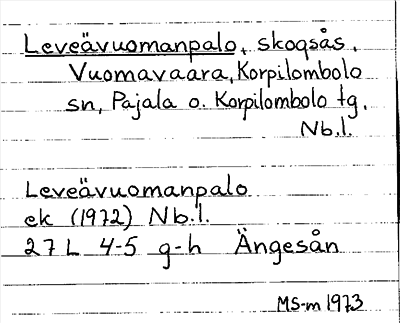 Leveävuomanpalo, skogsås,
Vuomavaara, Korpilombolo
sn, Pajala o. Korpilombolo tg,
Nb.l.
Leveävuomanpalo
ek (1972) Nb.l.
27 L 4-5 g-h Ängesån
MS-m 1973